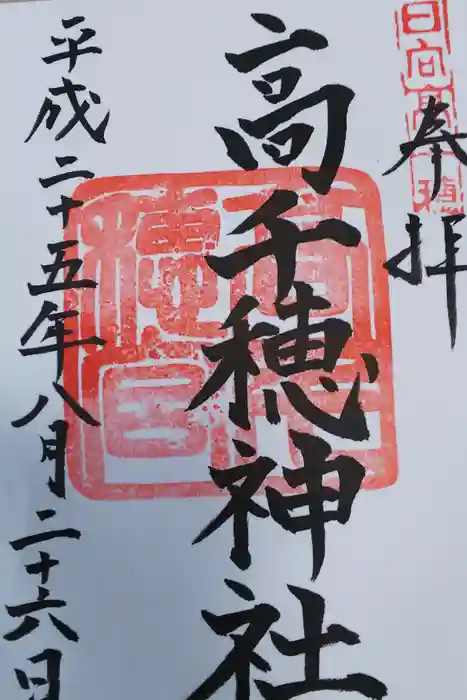 奉拝
日向高千穂
高千穂神社
高千穂宮
平成二十五年八月二十六日